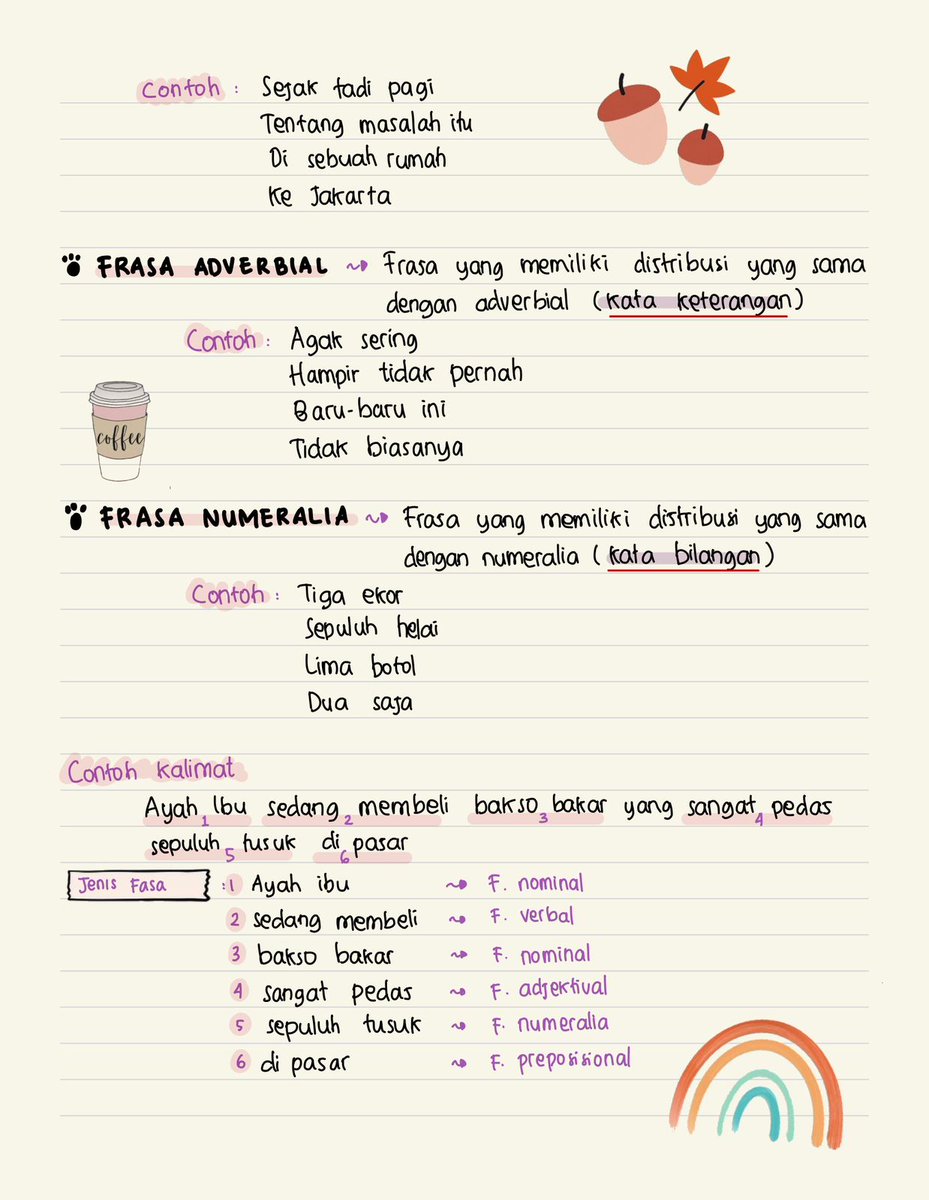 Contoh : Sejak tadi pagi
Tentang masalah itu
Di sebuah rumah
Ke Jakarta
FRASA ADVERBIAL ~> Frasa yang memiliki distribusi yang sama
dengan adverbial (kata keterangan)
Contoh : Agak sering
Hampir tidak pernah
Baru-baru ini
Tidak biasanya
coffee
FRASA NUMERALIA ~> Frasa yang memiliki distribusi yang sama
dengan numeralia (kata bilangan)
Contoh : Tiga ekor
Sepuluh helai
Lima botol
Dua saja
Contoh Kalimat
Ayah Ibu sedang membeli bakso bakar yang sangat pedas
1 2 3 4
sepuluh tusuk di pasar
5 6
Jenis Fasa : 1 Ayah ibu ~> F. nominal
2 sedang membeli ~> F. verbal
3 bakso bakar ~> F. nominal
4 sangat pedas ~> F. adjektival
5 sepuluh tusuk ~> F. numeralia
6 di pasar ~> F. preposisional